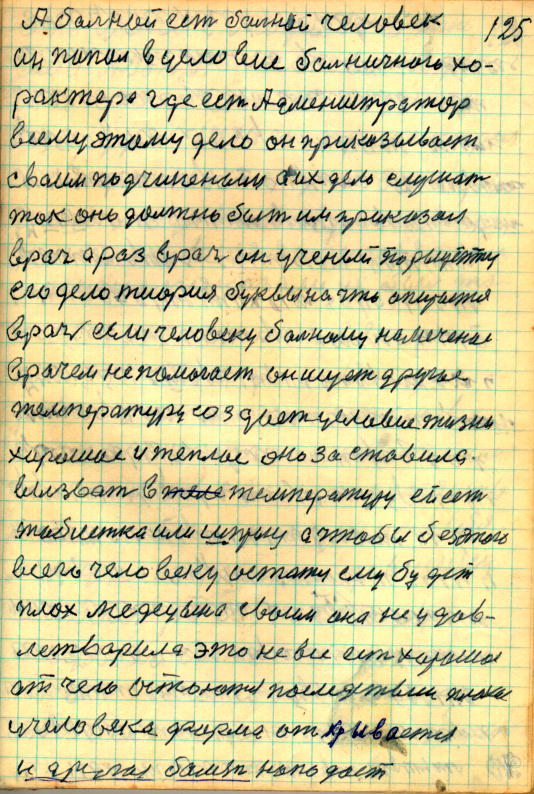 А балной ест балной человек 125
он попал в целовие балничного хо-
рактера где ест Адменистратор
всему этому дело он приказывает
своим подчиненым а их дело слушат
так оно должно быт им приказал
врач а раз врач он ученый по рецепту
его дело тиория буквы на что опирается
врач если человеку балному намеченое
врачем непомогает он ищет другое
температуру создает условие жизни
харошае и теплае оно заставила
влизват в температуру ей ест
таблетка или шприц а чтобы без этого
всего человеку остатся ему будет
плох медецына своим она не удов-
летварила это не все ест харошое
от чего остаются последствии плохие
у человека форма открывается
и другая балезн нападает